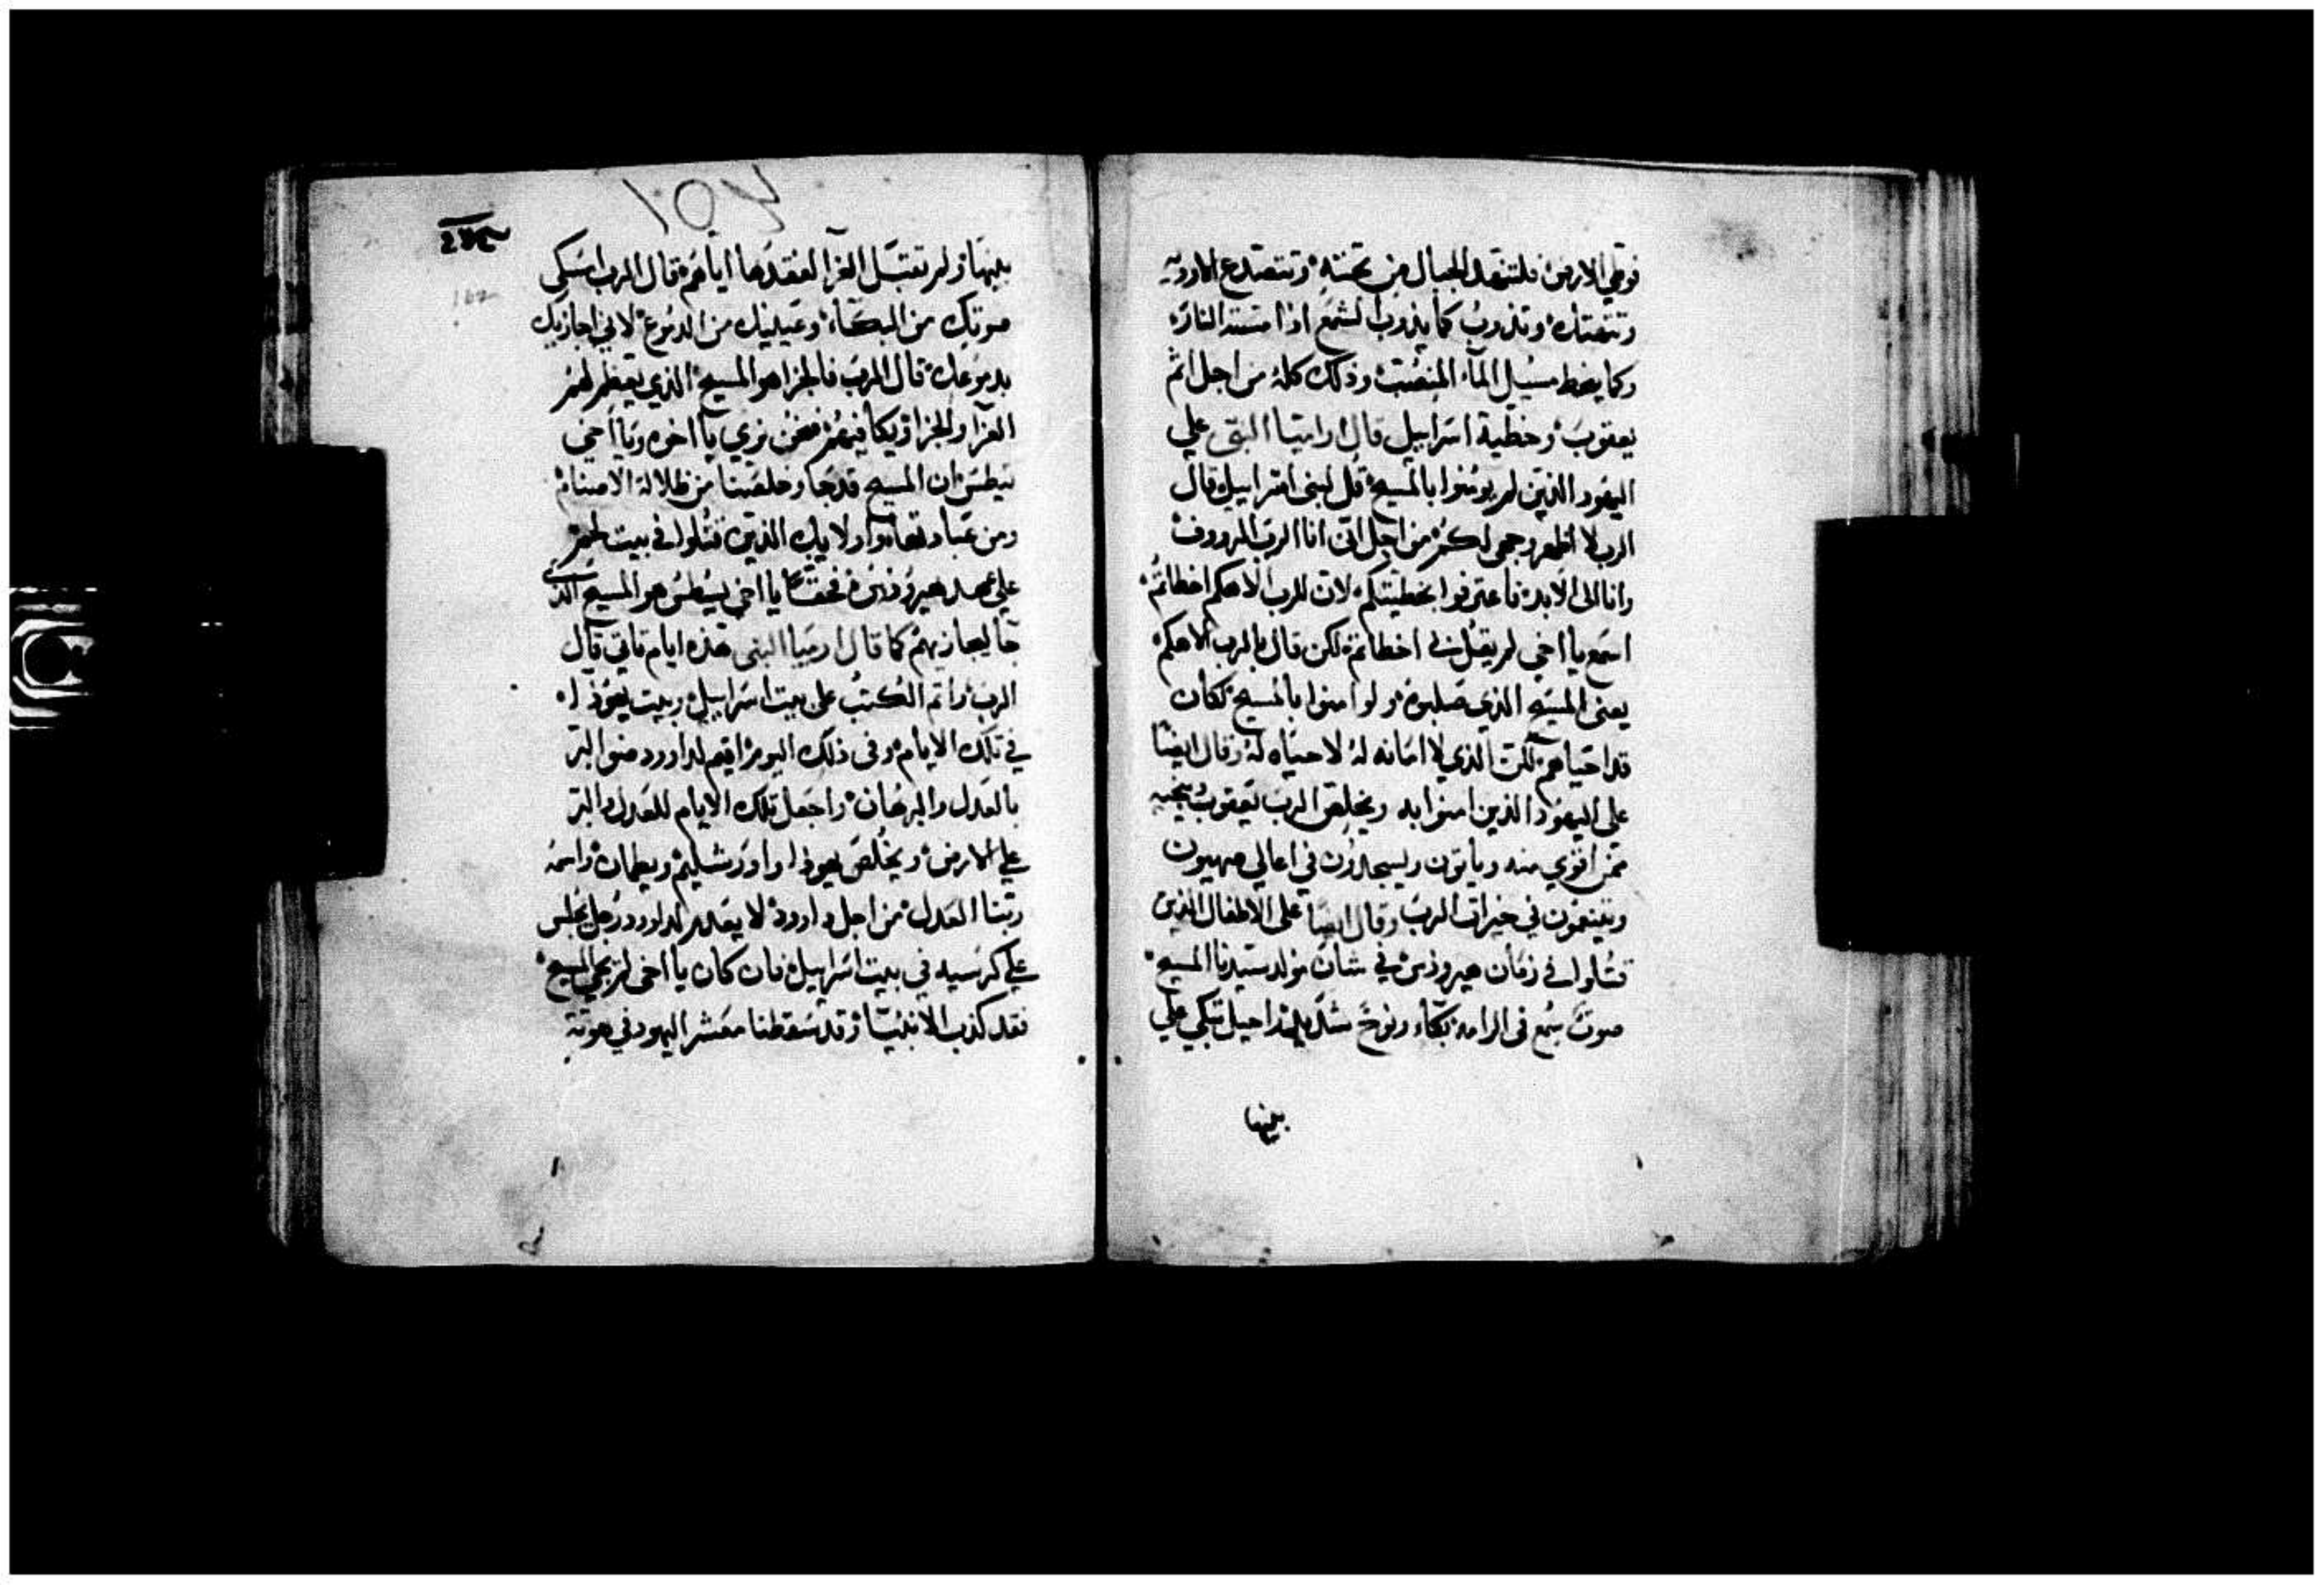 فوطي الارض فلتنقد الجبال من تحته وتتصدع الاوديه
وتذوب كما يذوب الشمع اذا مسته النار
وكما يهبط مسيل الماء المنصب وذلك كله من اجل اثم
يعقوب وخطية اسراييل قال ارميا النبي علي
اليهود الذين لم يومنوا بالمسيح قل لبني اسراييل قال
الرب لا اظهر وجهي لكم من اجل اني انا الرب الرووف
وانا الى الابد فاعترفوا بخطيتكم لان للرب الاهكم اخطاتم
اسمع يا اخي لم يقل لي اخطاتم لكن قال بالرب الاهكم
يعني المسيح الذي صلبوه ولو امنوا بالمسيح لكان
قد احياهم لكن الذي لا امانه له لا حياه له وقال ايضا
على اليهود الذين امنوا به ويخلص الرب يعقوب ينجيه
ممن اقوي منه وياتون ويسجدون في اعالي صهيون
ويتنعمون في خيرات الرب وقال ايضا على الاطفال الذين
قتلوا في زمان هيرودس في شان مولد سيدنا المسيح
صوت سمع في الرامه بكاء ونوح شديد راحيل تبكي علي
بنيها
بنيها ولم تقبل العزا لفقدها اياهم قال الرب اسكتي
صوتك من البكاء وعينيك من الدموع لاني اجازيك
بدموعك قال الرب فالجزا هو المسيح الذي يعظم لهم
العزا والجزا ويكافيهم فنحن نري يا اخوه ويا اخي
بيطس ان المسيح قد جا وخلصنا من ظلالة الاصنام
ومن عبادتها واولايك الذين قتلوا في بيت لحم
علي عهد هيرودس فحقا يا اخي بيطس هو المسيح الذي
جا ليجازيهم كما قال ارميا النبي هذه ايام تاتي قال
الرب واتم الكتب على بيت اسراييل وبيت يهوذا
في تلك الايام وفي ذلك اليوم اقيم لداوود ضو البر
بالعدل والبرهان واجعل تلك الايام للعدل والبر
علي الارض ويخلص يهوذا واورشليم ويطمان واسمه
ربنا العدل من اجل داوود لا يعدم لداوود رجل يجلس
علي كرسيه في بيت اسراييل فان كان يا اخي لم يجي المسيح
فقد كذب الانبيا وقد سقطنا معشر اليهود في هوته